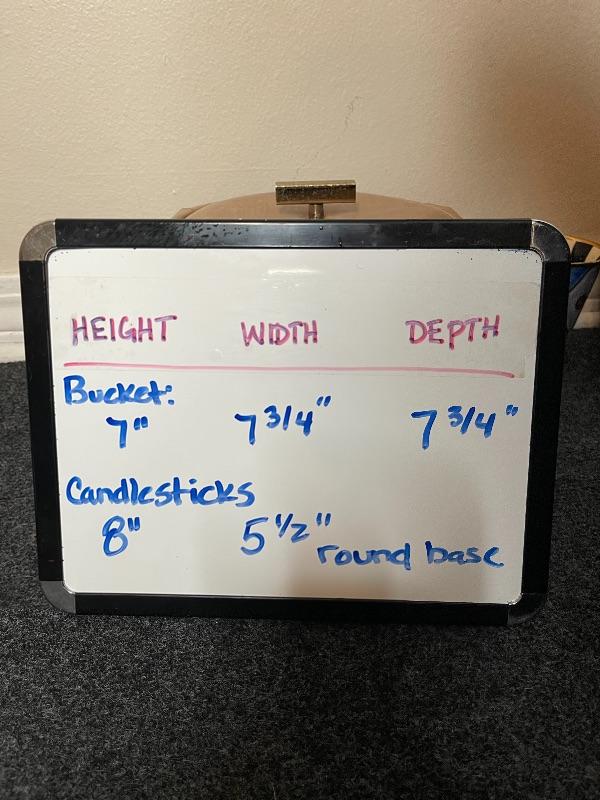 HEIGHT WIDTH DEPTH
Bucket:
7" 7 3/4" 7 3/4"
Candlesticks
8" 5 1/2" round base